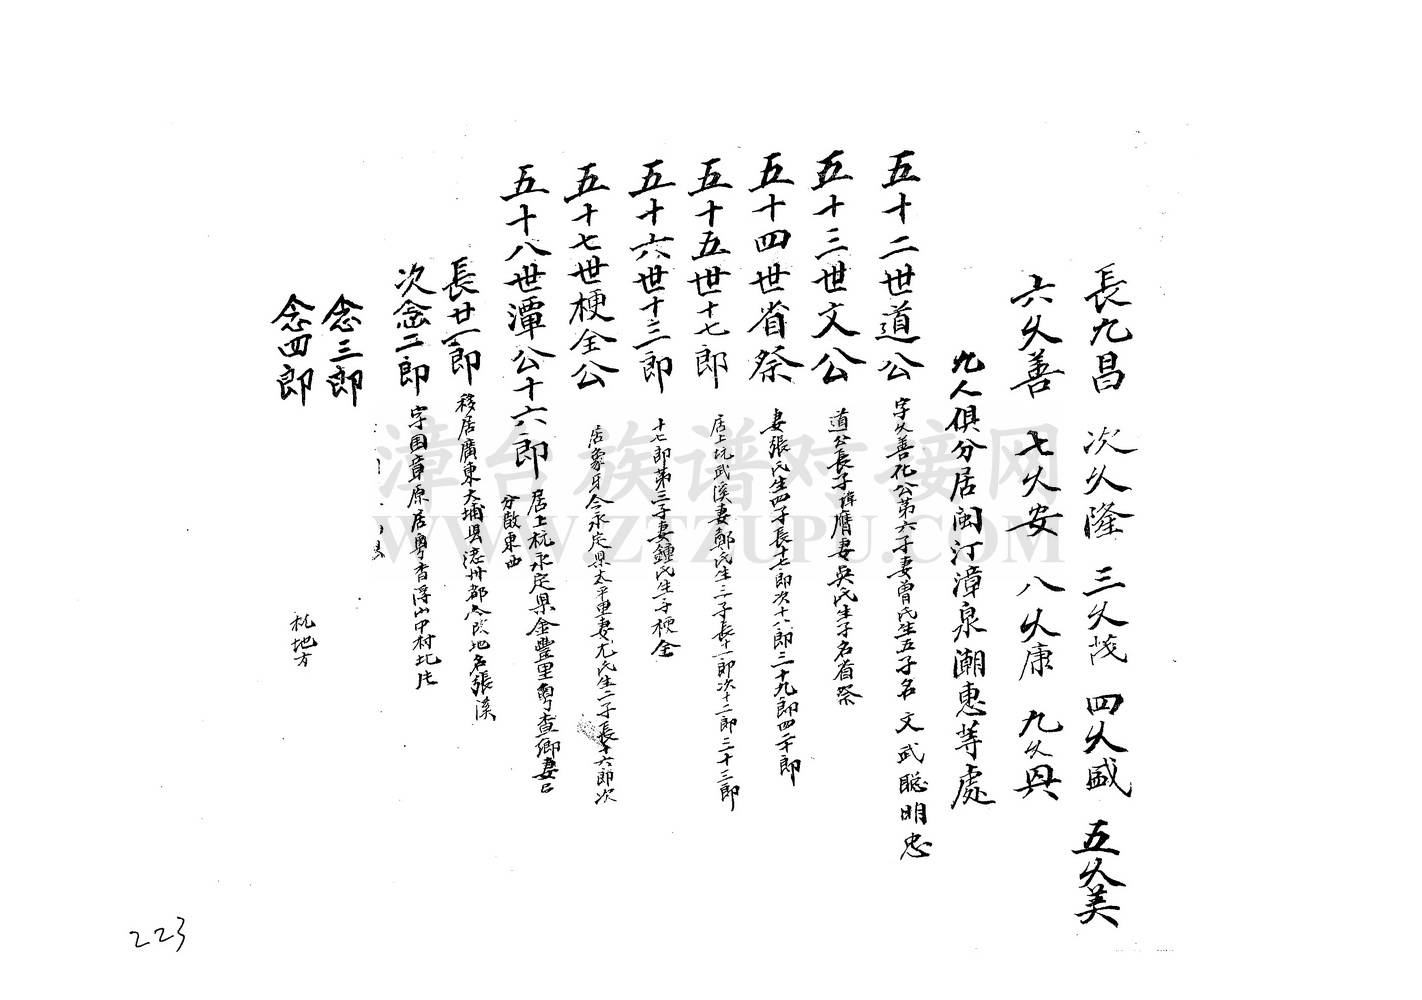 長九昌 次久隆 三久茂 四久盛 五久美
六久善 七久安 八久康 九久興
九人俱分居闽汀漳泉潮惠等處
五十二世道公 字久善化公第六子妻曾氏生五子名文武聪明忠
五十三世文公 道公長子諱膺妻吳氏生子名省祭
五十四世省祭 妻張氏生四子長十七郎次十八郎三十九郎四二十郎
五十五世十七郎 居上坑武溪妻鄭氏生三子長十一郎次十二郎三十三郎
五十六世十三郎 十七郎第三子妻鍾氏生子梗全
五十七世梗全公 居象牙今永定県太平里妻尤氏生二子長十六郎次
五十八世潭公十六郎 居上杭永定県金豐里粤查鄉妻呂
分散東西
長廿一郎 移居廣東大埔县漶州都今改地名張溪
次念二郎 字国章原居粤杳浮山中村北片
念三郎
念四郎 杭地方
漳台族谱对接网
WWW.ZTZUPU.COM
223